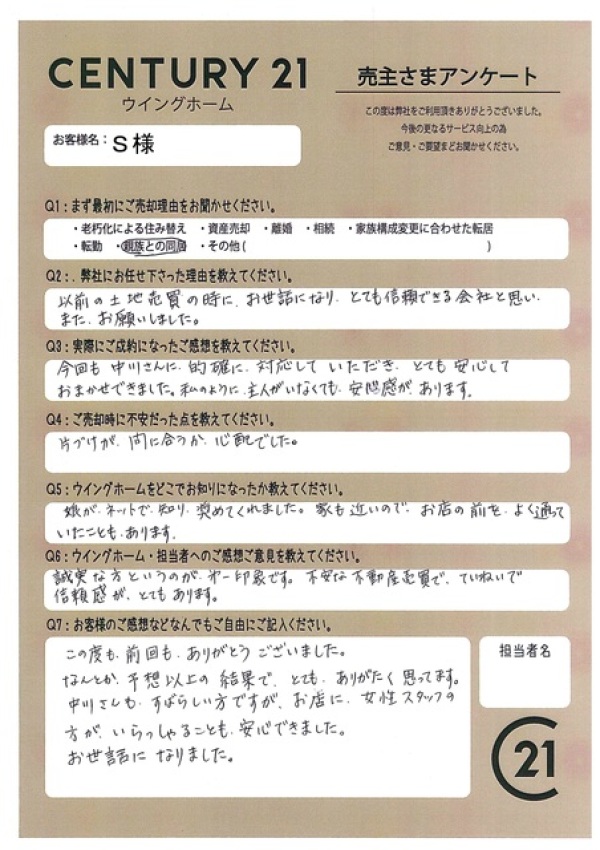 CENTURY 21
ウイングホーム
売主さまアンケート
この度は弊社をご利用頂きありがとうございました。
今後の更なるサービス向上の為
ご意見・ご要望までお聞かせください。
お客様名：S様
Q1：まず最初にご売却理由をお聞かせください。
・老朽化による住み替え ・資産売却 ・離婚 ・相続 ・家族構成変更に合わせた転居
・転勤 ・親族との同居 ・その他（ ）
Q2：．弊社にお任せ下さった理由を教えてください。
以前の土地売買の時に、お世話になり、とても信頼できる会社と思い、
また、お願いしました。
Q3：実際にご成約になったご感想を教えてください。
今回も中川さんに、的確に、対応していただき、とても安心して
おまかせできました。私のように、主人がいなくても、安心感が、あります。
Q4：ご売却時に不安だった点を教えてください。
片づけが、間に合うか、心配でした。
Q5：ウイングホームをどこでお知りになったか教えてください。
娘が、ネットで、知り、奨めてくれました。家も近いので、お店の前を、よく通って
いたことも、あります。
Q6：ウイングホーム・担当者へのご感想ご意見を教えてください。
誠実な方というのが、第一印象です。不安な不動産売買で、ていねいで
信頼感が、とてもあります。
Q7：お客様のご感想などなんでもご自由にご記入ください。
この度も、前回も、ありがとうございました。
なんとか、予想以上の結果で、とても、ありがたく思ってます。
中川さんも、すばらしい方ですが、お店に、女性スタッフの
方が、いらっしゃることも、安心できました。
お世話になりました。
担当者名
21